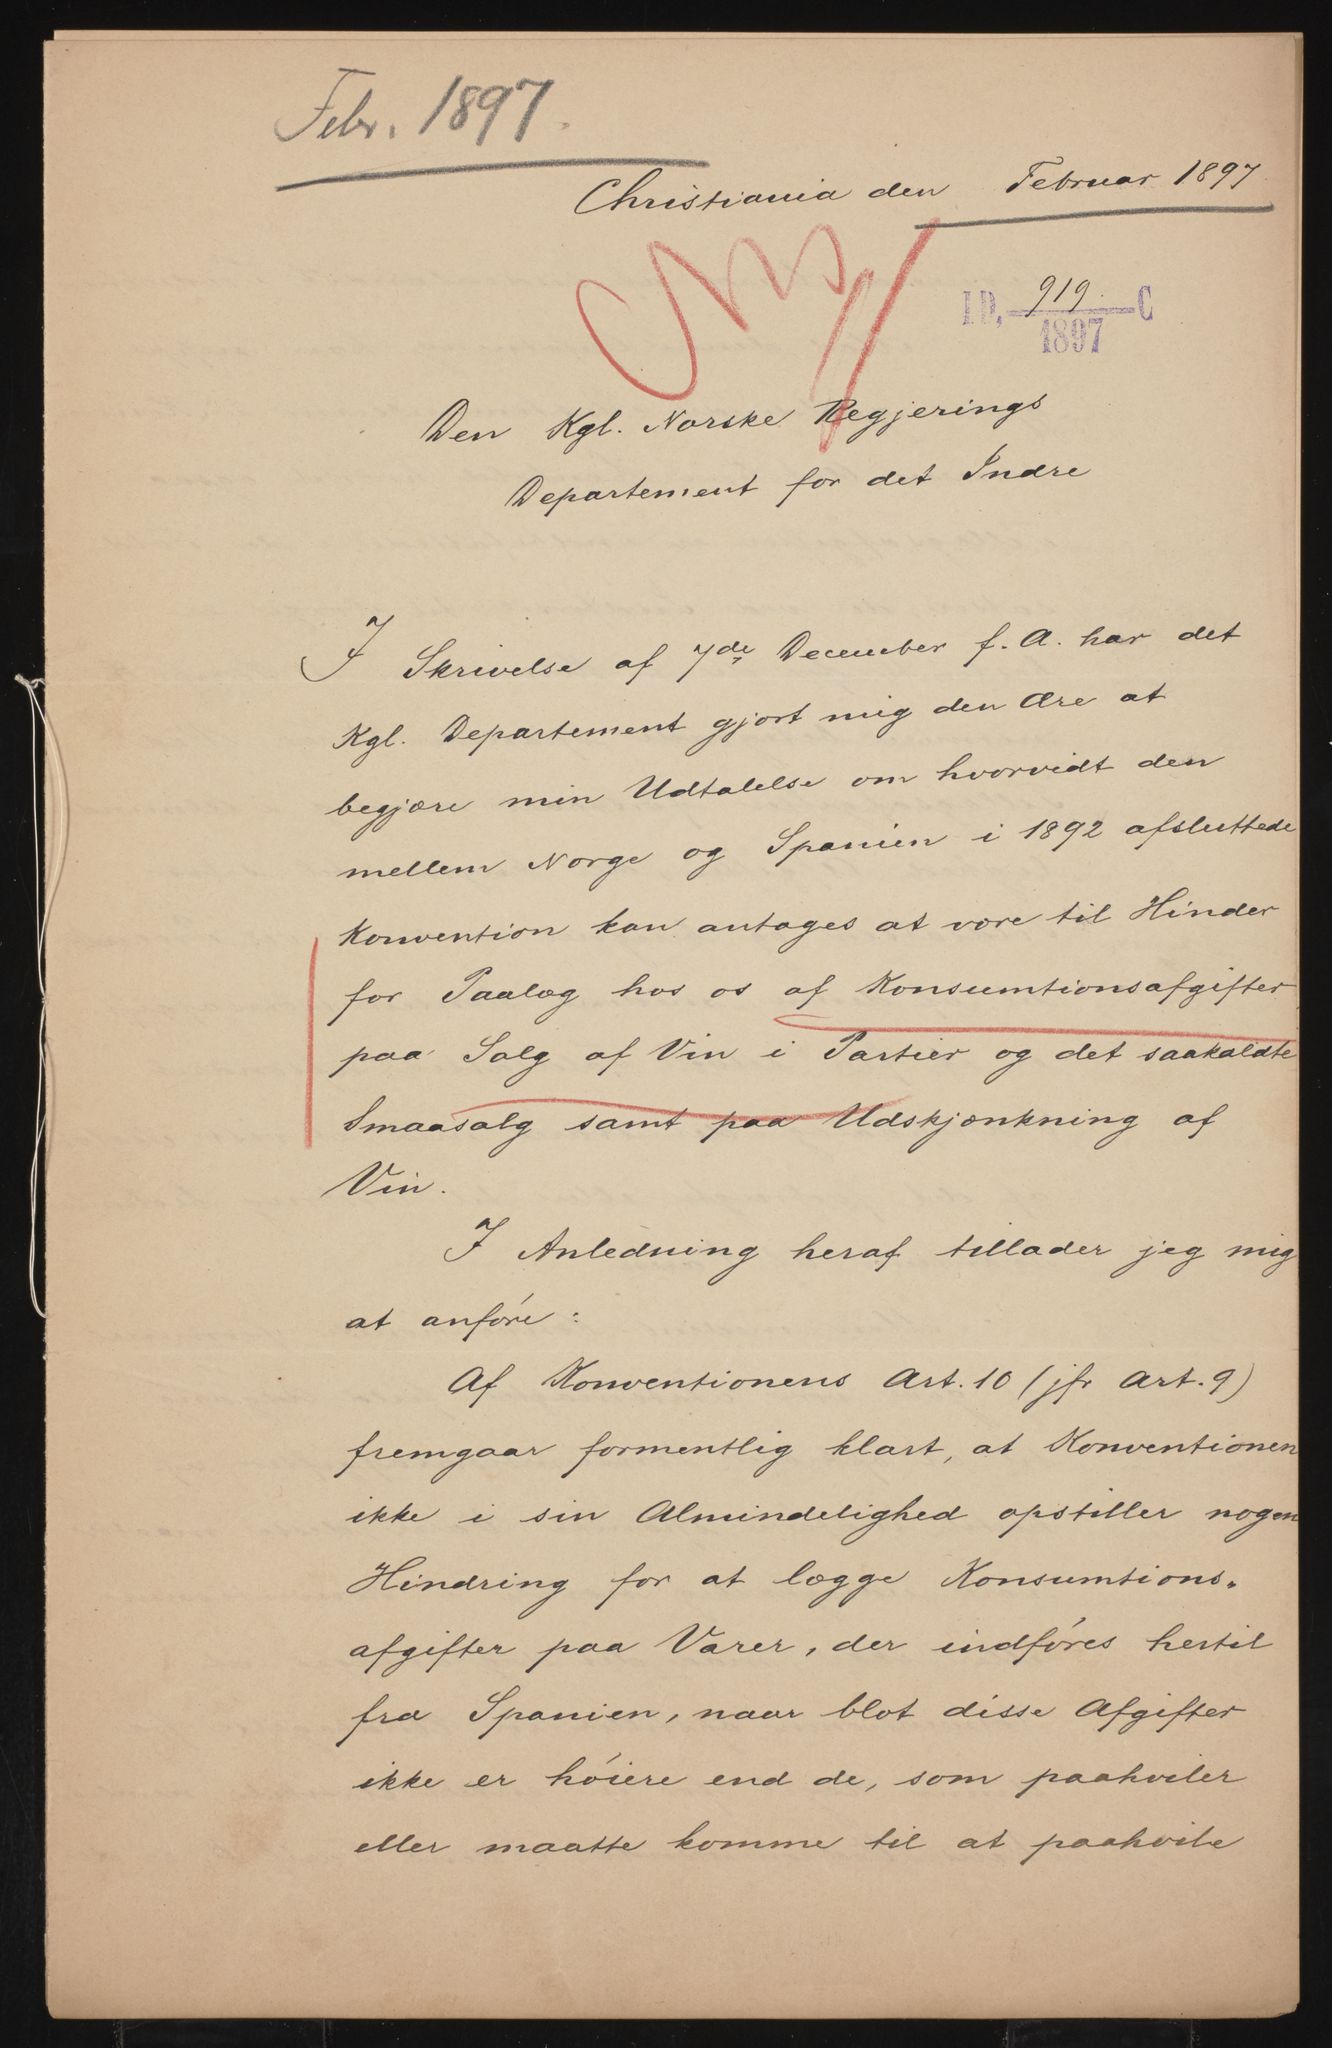 Febr. 1897.
Christiania den Februar 1897
I D, 919. C
1897
Den Kgl. Norske Regjerings
Departement for det Indre
I Skrivelse af 7de December f. A. har det
Kgl. Departement gjort mig den Ære at
begjære min Udtalelse om hvorvidt den
mellem Norge og Spanien i 1892 afsluttede
Konvention kan antages at være til Hinder
for Paalæg hos os af Konsumtionsafgifter
paa Salg af Vin i Partier og det saakaldte
Smaasalg samt paa Udskjænkning af
Vin.
I Anledning heraf tillader jeg mig
at anføre:
Af Konventionens Art. 10 (jfr Art. 9)
fremgaar formentlig klart, at Konventionen
ikke i sin Almindelighed opstiller nogen
Hindring for at lægge Konsumtions-
afgifter paa Varer, der indføres hertil
fra Spanien, naar blot disse Afgifter
ikke er høiere end de, som paahviler
eller maatte komme til at paahvile